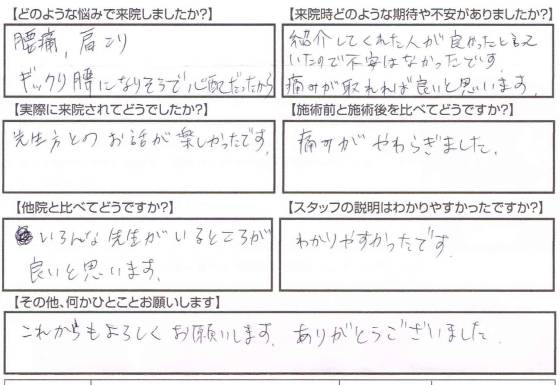 【どのような悩みで来院しましたか?】
腰痛,肩こり
ギックリ腰になりそうで心配だったから
【来院時どのような期待や不安がありましたか?】
紹介してくれた人が良かったと言って
いたので不安はなかったです
痛みが取れれば良いと思います.
【実際に来院されてどうでしたか?】
先生方とのお話が楽しかったです.
【施術前と施術後を比べてどうですか?】
痛みがやわらぎました.
【他院と比べてどうですか?】
いろんな先生がいるところが
良いと思います.
【スタッフの説明はわかりやすかったですか?】
わかりやすかったです.
【その他、何かひとことお願いします】
これからもよろしくお願いします. ありがとうございました.